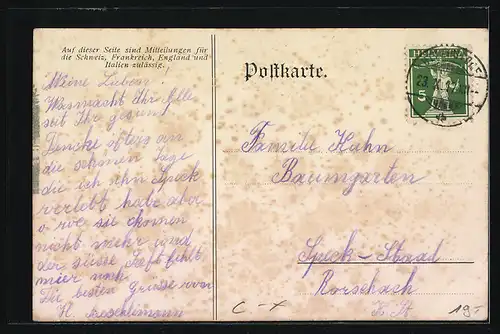 Auf dieser Seite sind Mitteilungen für
die Schweiz, Frankreich, England und
Italien zulässig.
Postkarte.
Meine Lieben!
Was macht Ihr Alle
seit Ihr gesund
Denke öfters an
die schönen Tage
die ich in Speck
verlebt habe aba
sie können
nicht mehr und
der süsse Saft fehlt
mier
Die besten Grüsse von
H.
Familie Hahn
Baumgarten
Speck-Staad
Rorschach
K. St
5
C - x
19.-